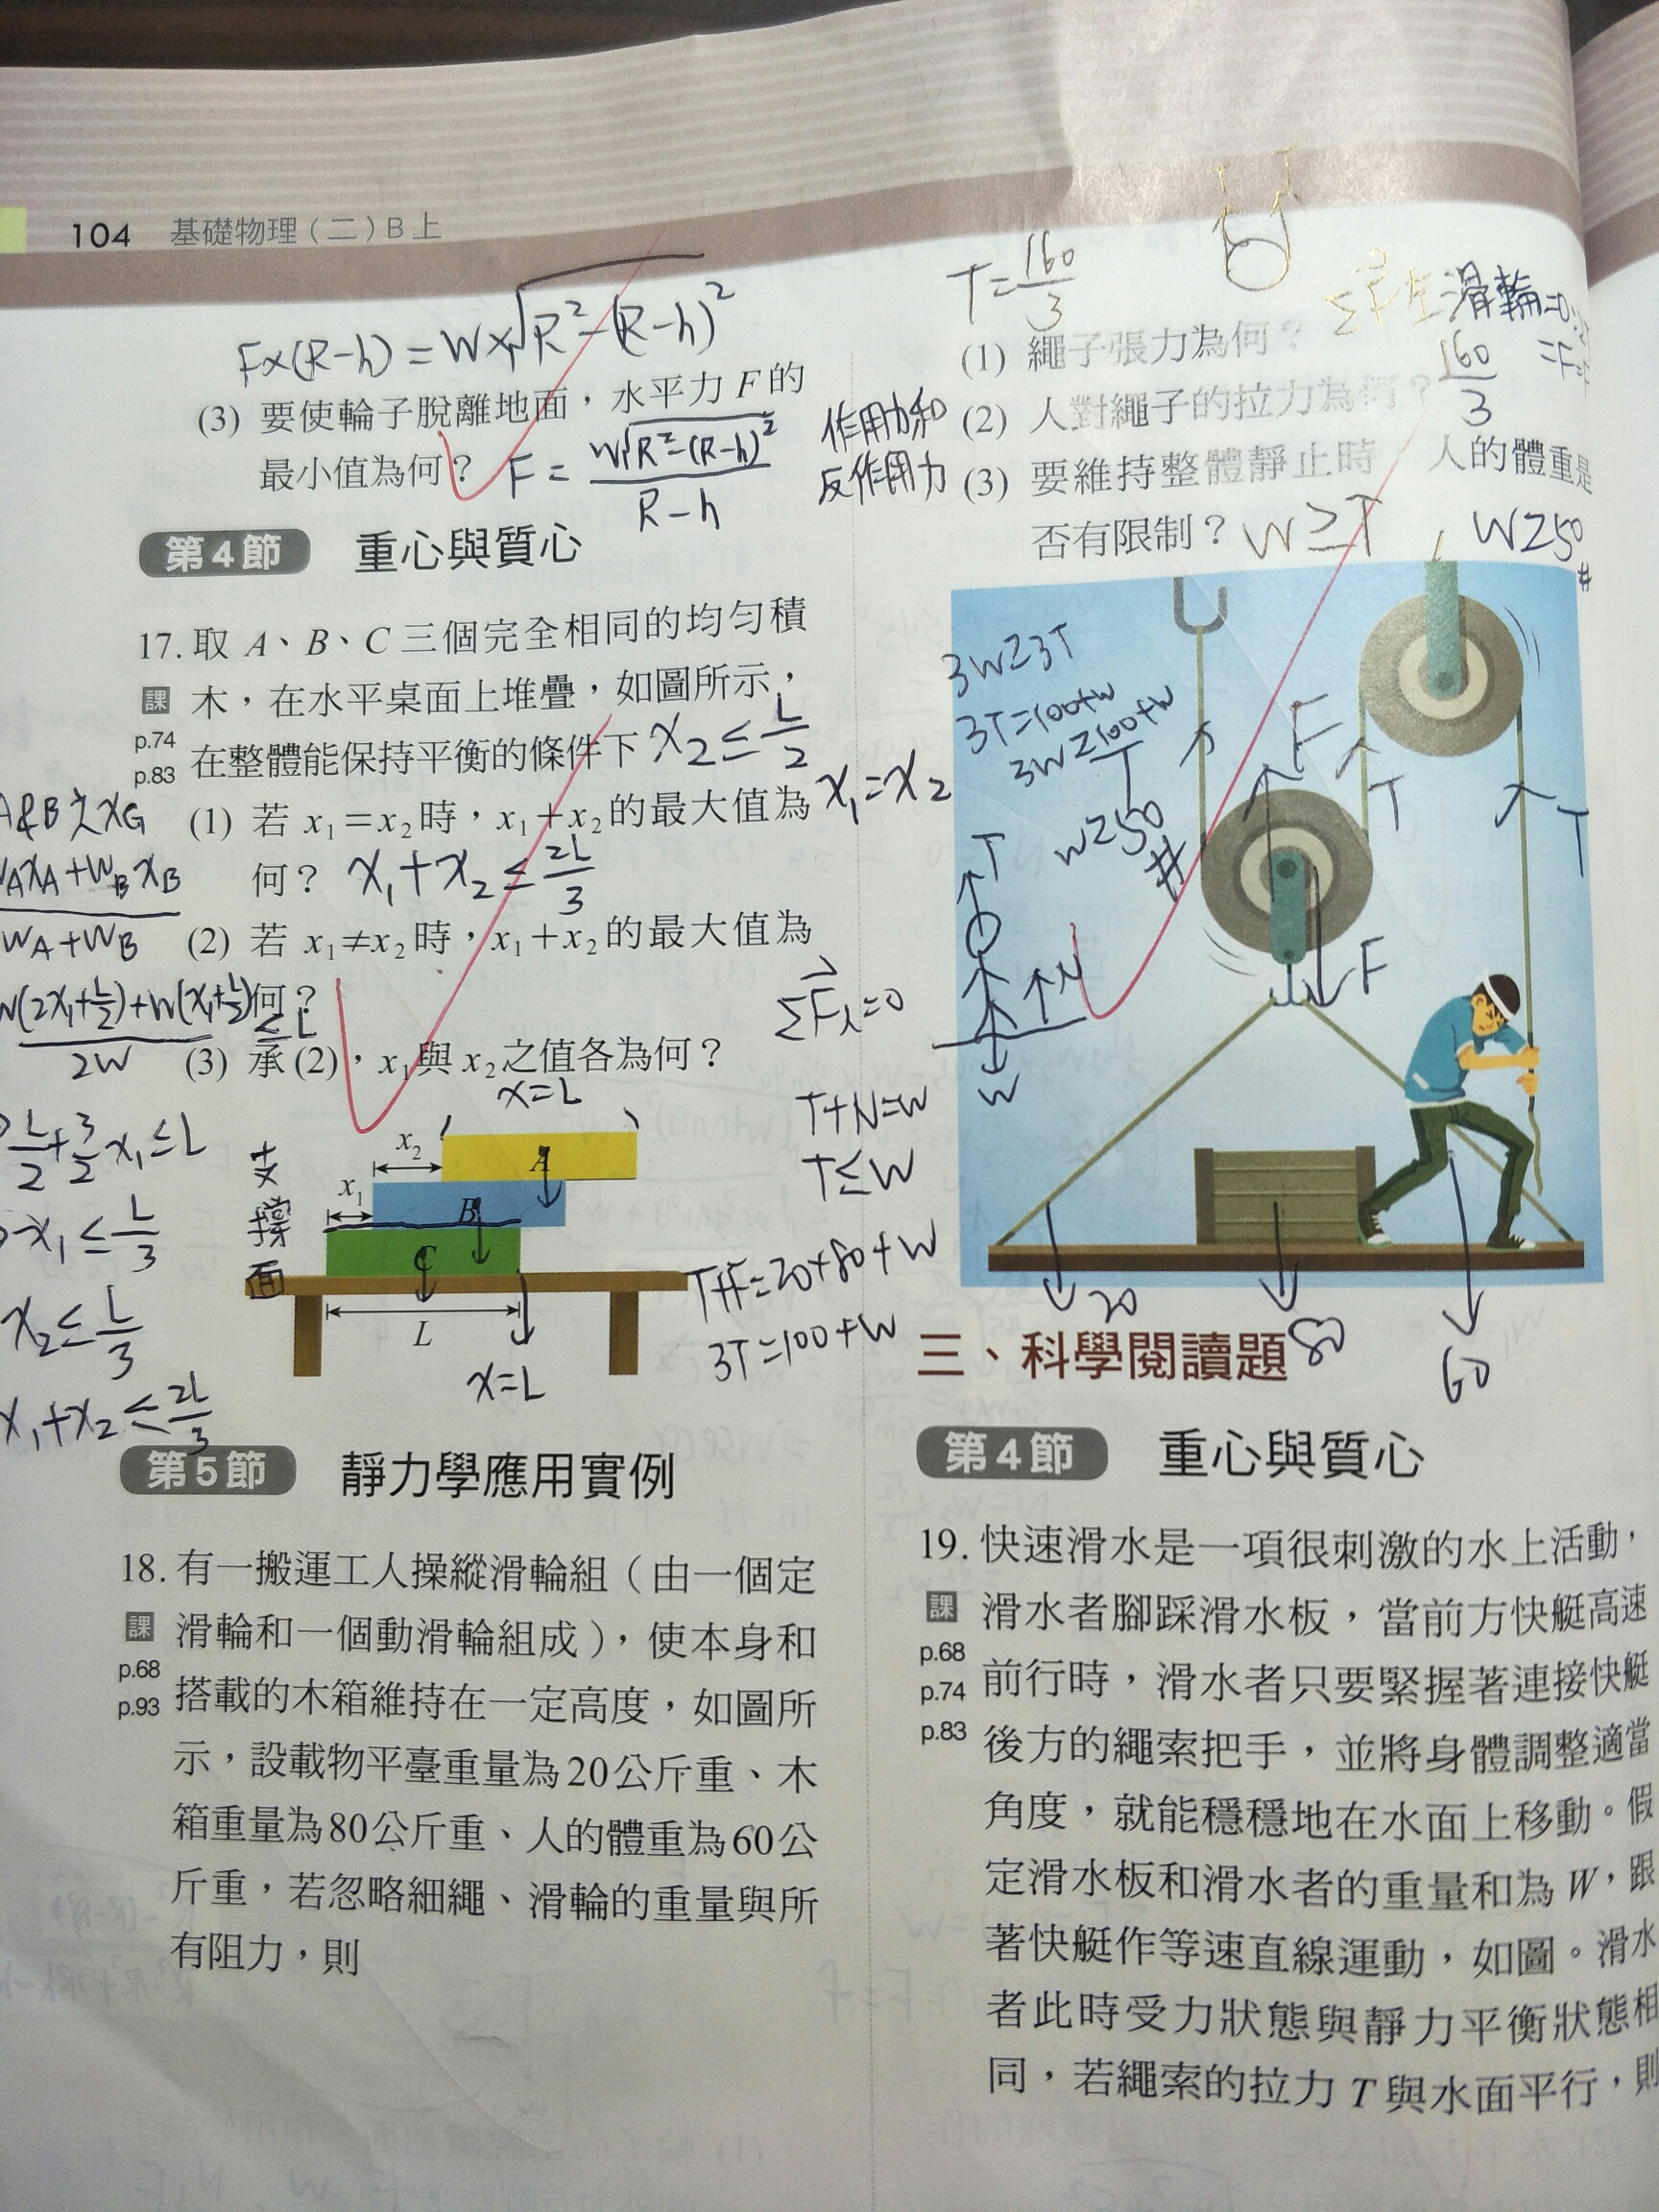 104 基礎物理（二）B上
F×(R-h)=W×√R²-(R-h)²
(3) 要使輪子脫離地面，水平力 F 的
最小值為何？ F = W√R²-(R-h)² / R-h
第4節 重心與質心
17. 取 A、B、C 三個完全相同的均勻積
課 木，在水平桌面上堆疊，如圖所示，
p.74
p.83 在整體能保持平衡的條件下 x₂≤L/2
(1) 若 x₁=x₂時，x₁+x₂的最大值為 x₁=x₂
何？ x₁+x₂≤2L/3
(2) 若 x₁≠x₂時，x₁+x₂的最大值為
何？
(3) 承(2)，x₁與 x₂之值各為何？
A&B之xG
WAxA+WBxB
WA+WB
W(2x₁+L/2)+W(x₁+L/2) ≤L
2W
L/2+3/2x₁≤L
x₁≤L/3
x₂≤L/3
x₁+x₂≤2L/3
支撐面
x=L
x₂
A
x₁
B
C
L
x=L
第5節 靜力學應用實例
18. 有一搬運工人操縱滑輪組（由一個定
課 滑輪和一個動滑輪組成），使本身和
p.68
p.93 搭載的木箱維持在一定高度，如圖所
示，設載物平臺重量為20公斤重、木
箱重量為80公斤重、人的體重為60公
斤重，若忽略細繩、滑輪的重量與所
有阻力，則
T=160/3
滑輪=0
(1) 繩子張力為何？
160/3
作用力和
反作用力
(2) 人對繩子的拉力為何？
(3) 要維持整體靜止時 人的體重是
否有限制？ W≥T W≥50 #
3W≥3T
3T=100+W
3W≥100+W
W≥50
#
T
F
T
T
T
F
N
W
ΣF人=0
T+N=W
T≤W
T+F=20+80+W
3T=100+W
20
80
60
三、科學閱讀題
第4節 重心與質心
19. 快速滑水是一項很刺激的水上活動，
課 滑水者腳踩滑水板，當前方快艇高速
p.68
p.74 前行時，滑水者只要緊握著連接快艇
p.83 後方的繩索把手，並將身體調整適當
角度，就能穩穩地在水面上移動。假
定滑水板和滑水者的重量和為 W，跟
著快艇作等速直線運動，如圖。滑水
者此時受力狀態與靜力平衡狀態相
同，若繩索的拉力 T 與水面平行，則